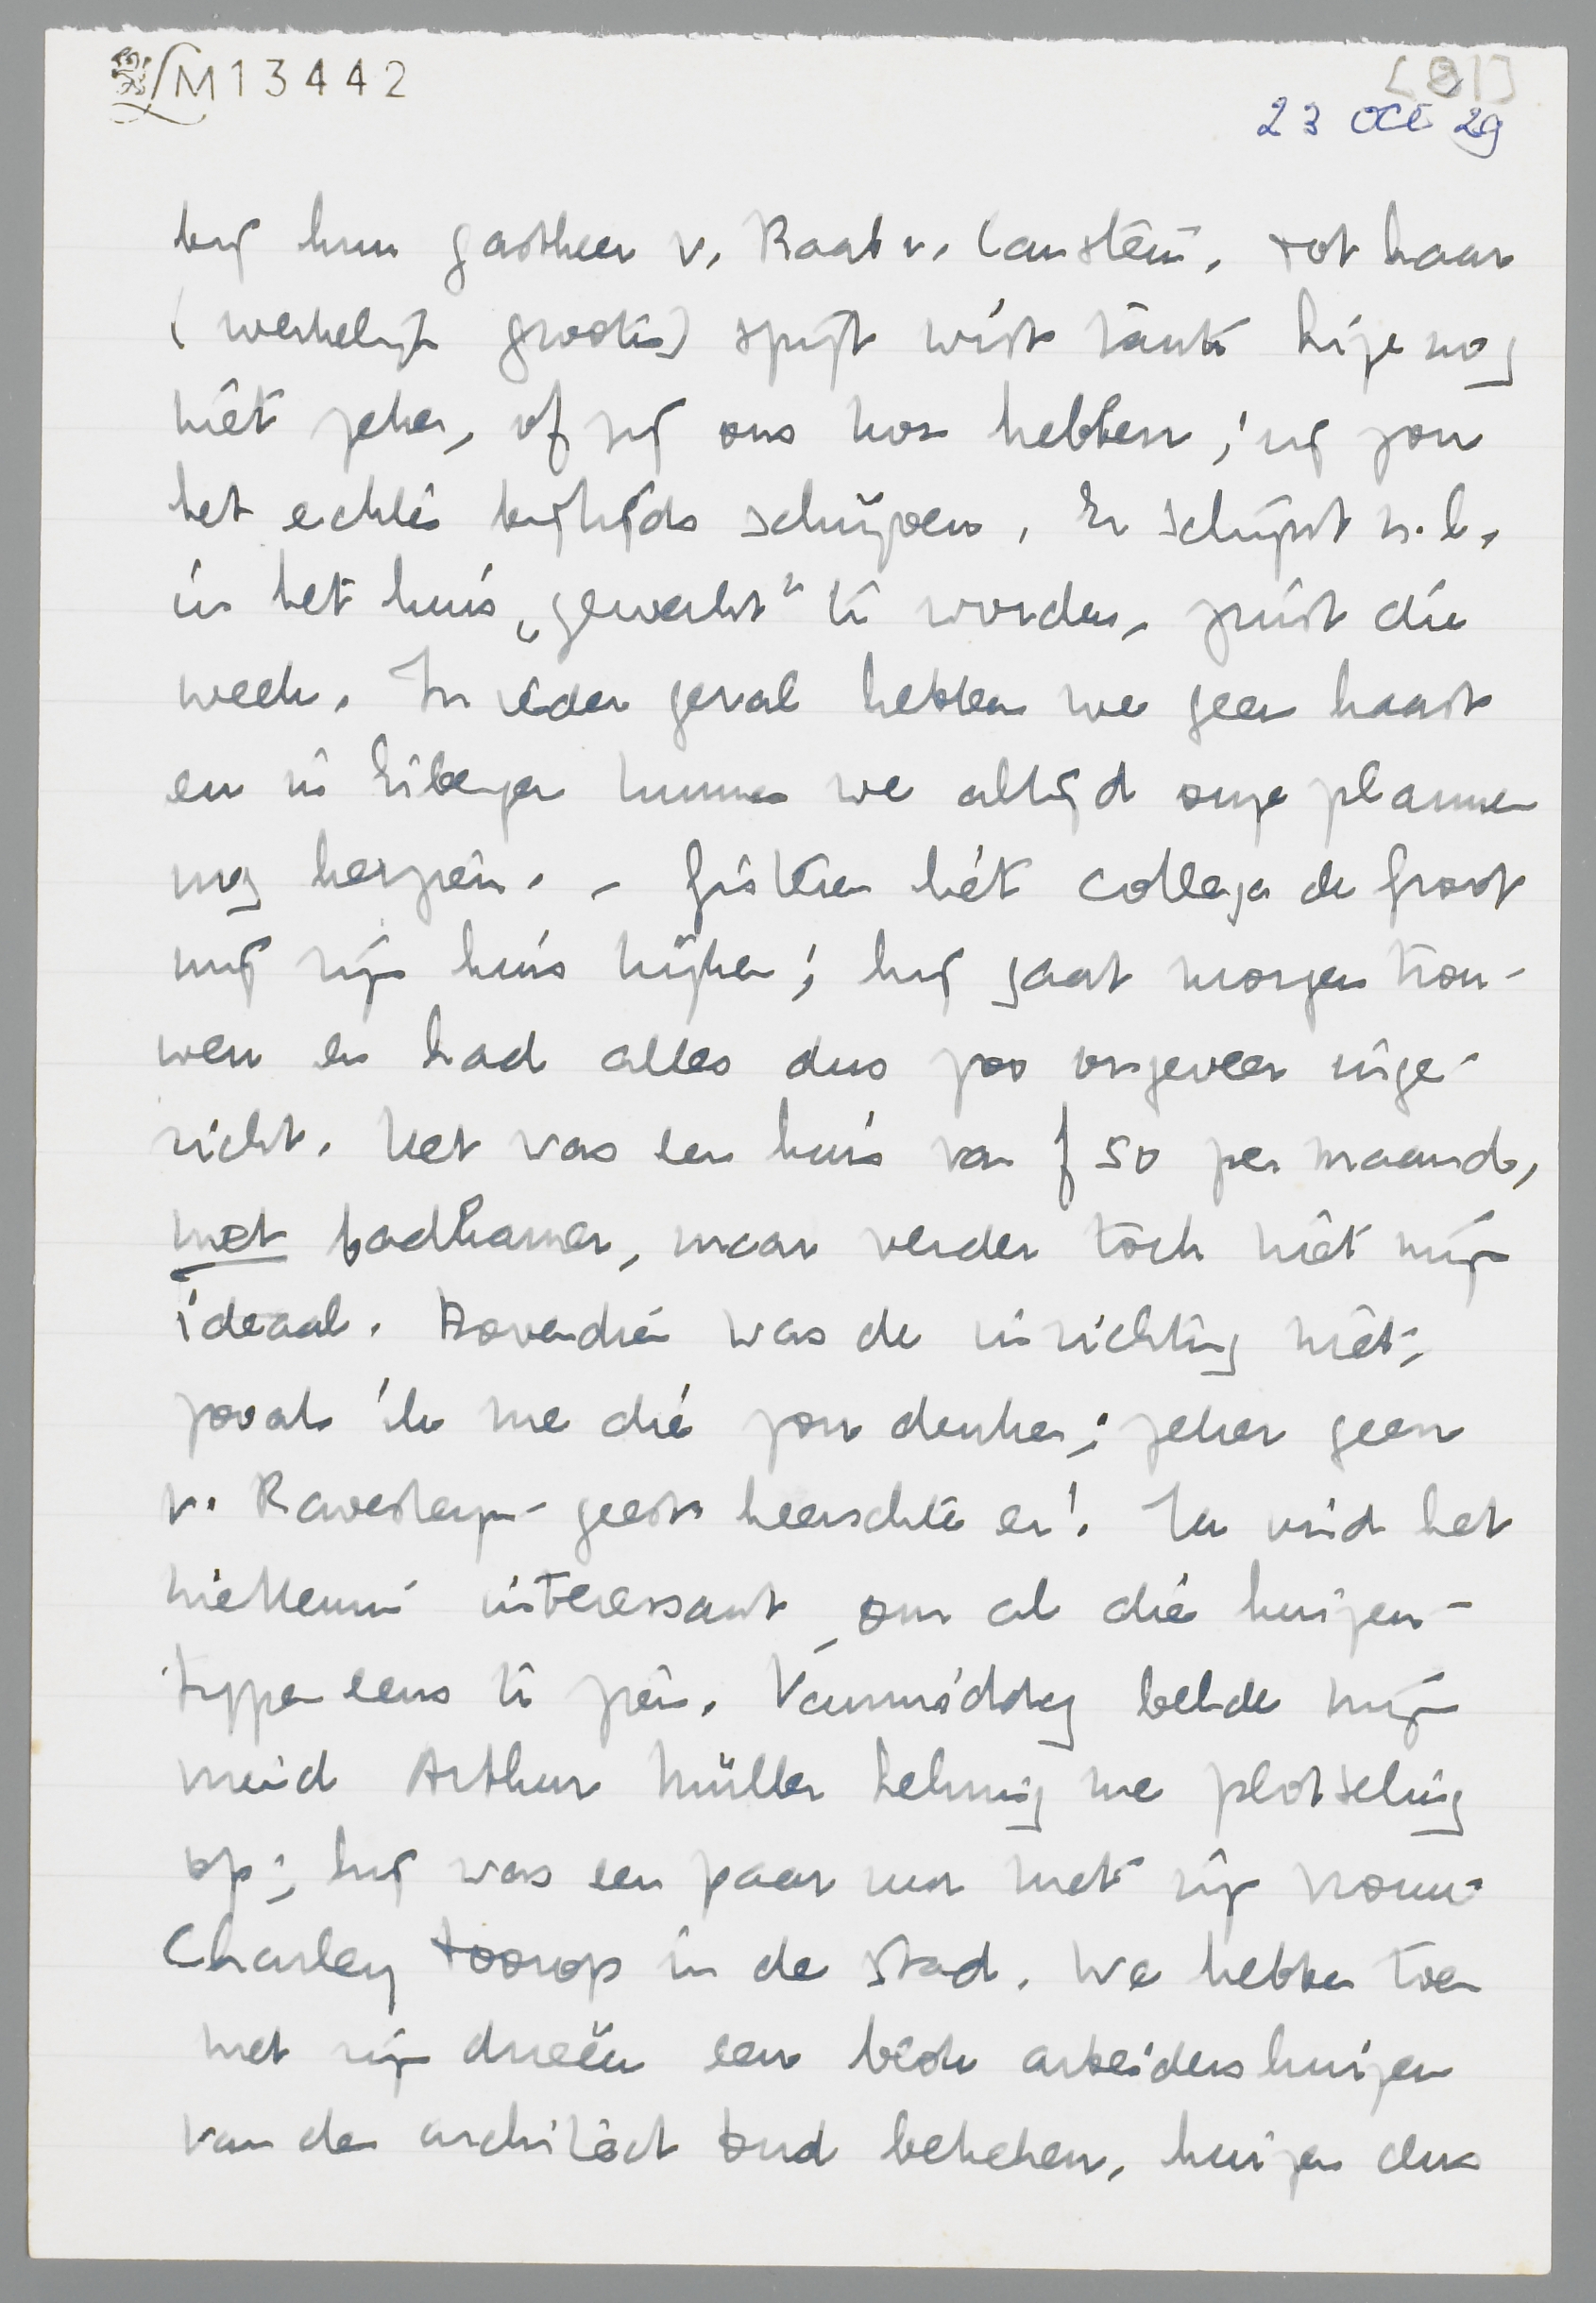 LM13442
[81]
23 OCT 29
bij hun gastheer v. Raab v. Canstein. Tot haar
(werkelijk groote) spijt wist tante Lize nog
niet zeker, of zij ons kon hebben; zij zou
het echter bijtijds schrijven. Er schijnt n.l.
in het huis „gewerkt" te worden, juist die
week. In ieder geval hebben we geen haast
en in Eibergen kunnen we altijd onze plannen
nog herzien. – Gisteren liet collega de Groot
mij zijn huis kijken; hij gaat morgen trou-
wen en had alles dus zoo ongeveer inge-
richt. Het was een huis van f 50 per maand,
met badkamer, maar verder toch niet mijn
ideaal. Bovendien was de inrichting niet,
zooals ik me die zou denken; zeker geen
v. Ravesteyn-geest heerschte er! Ik vind het
niettemin interessant, om al die huizen-
typen eens te zien. Vanmiddag belde mijn
vriend Arthur Müller Lehning me plotseling
op; hij was een paar uur met zijn vrouw
Charley Toorop in de stad. We hebben toen
met zijn drieën een blok arbeidershuizen
van den architect Oud bekeken, huizen dus